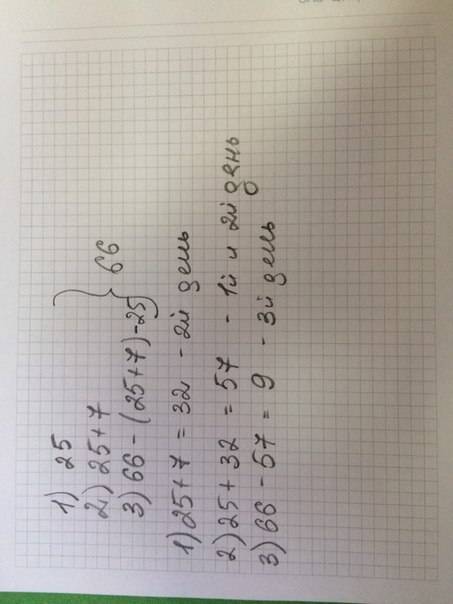 1) 25
2) 25+7
3) 66 - (25+7) - 25
} 66
1) 25 + 7 = 32 - 2й день
2) 25 + 32 = 57 - 1й и 2й день
3) 66 - 57 = 9 - 3й день